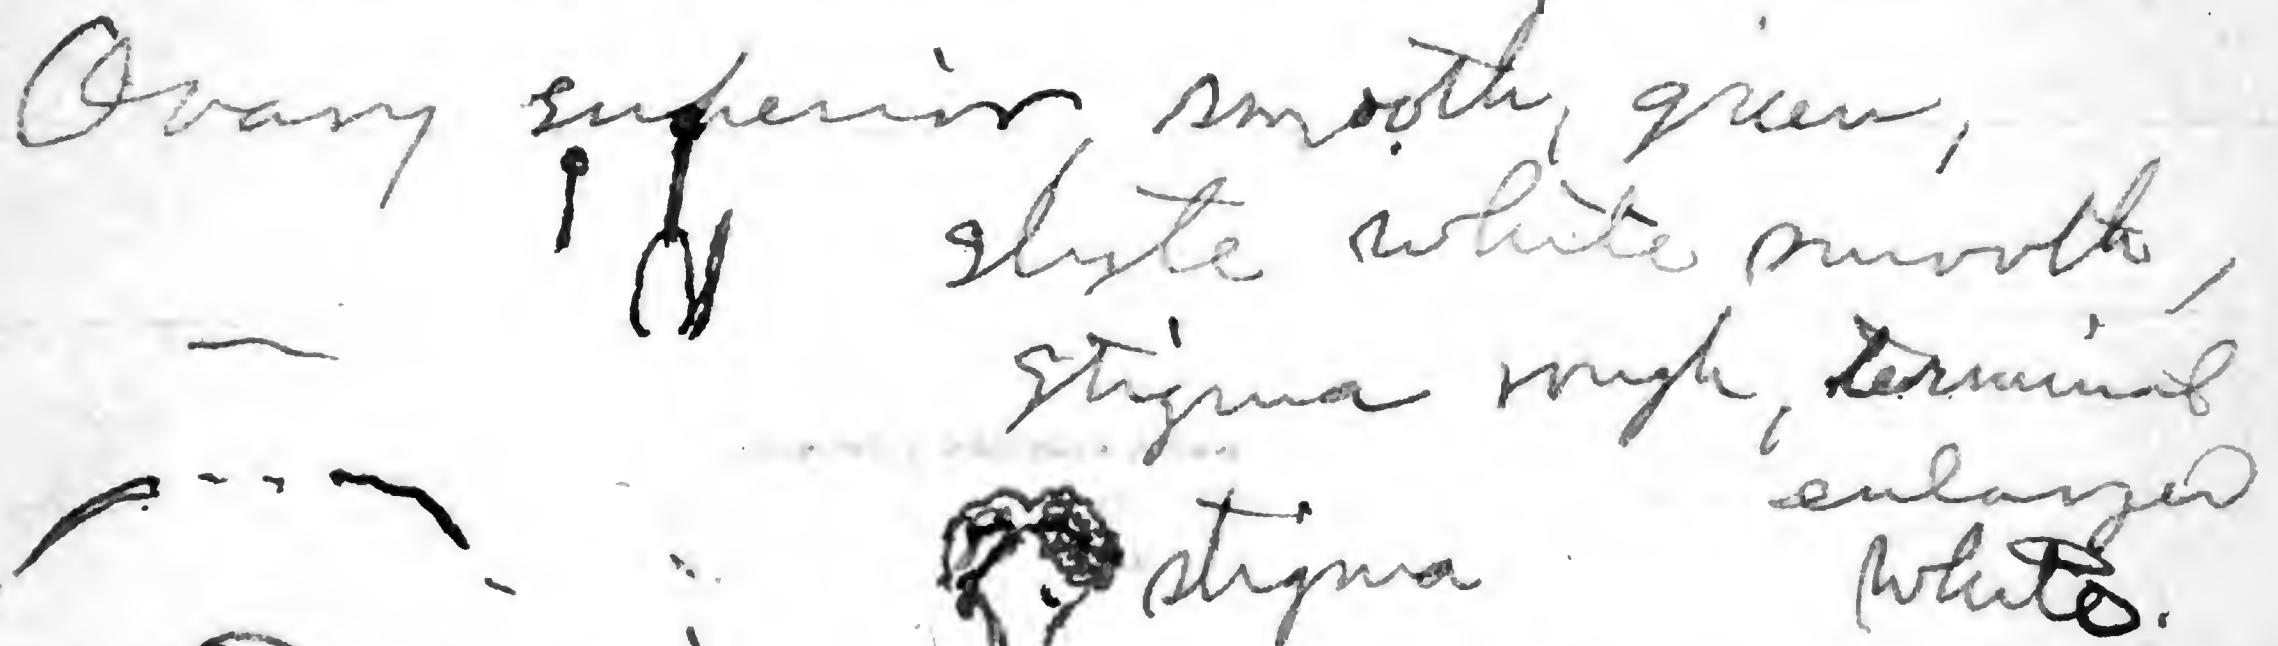 Ovary superior, smooth, green,
style white smooth,
stigma rough, terminal
enlarged
stigma white.